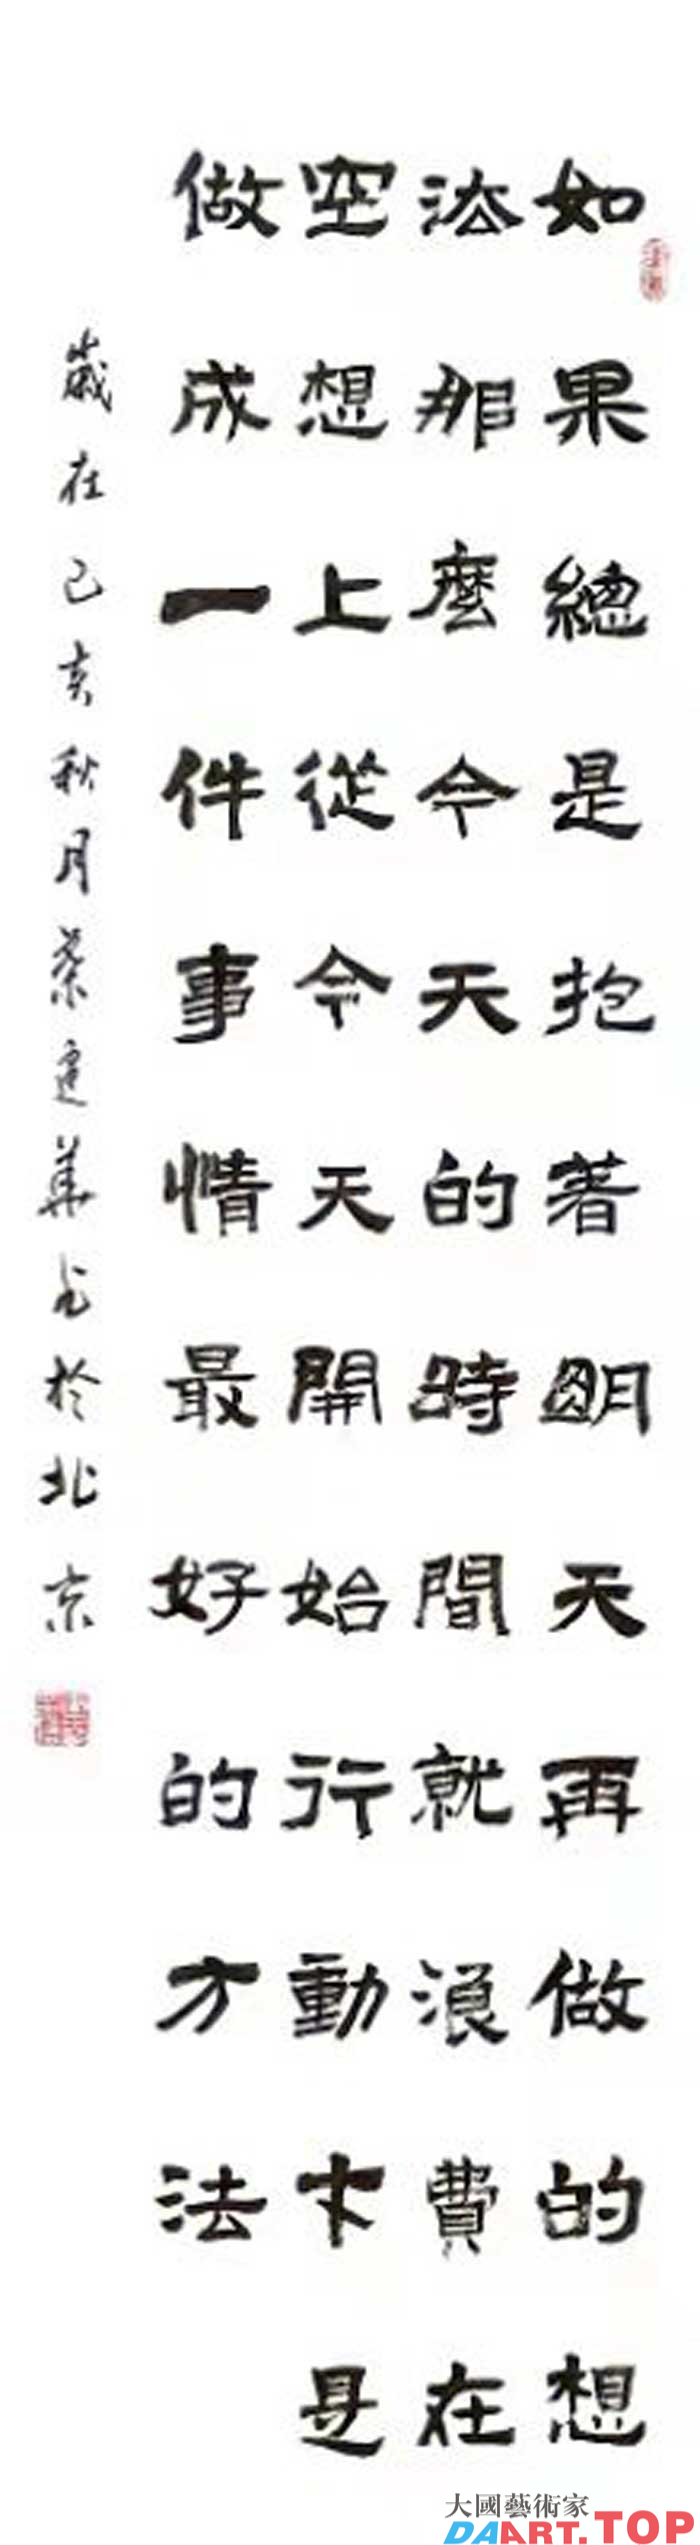 如果總是抱著朙天再做的想
法那麼今天的時間就浪費在
空想上從今天開始行動才是
做成一件事情最好的方法
歲在己亥秋月蔡華書於北京
大國藝術家
DAART.TOP